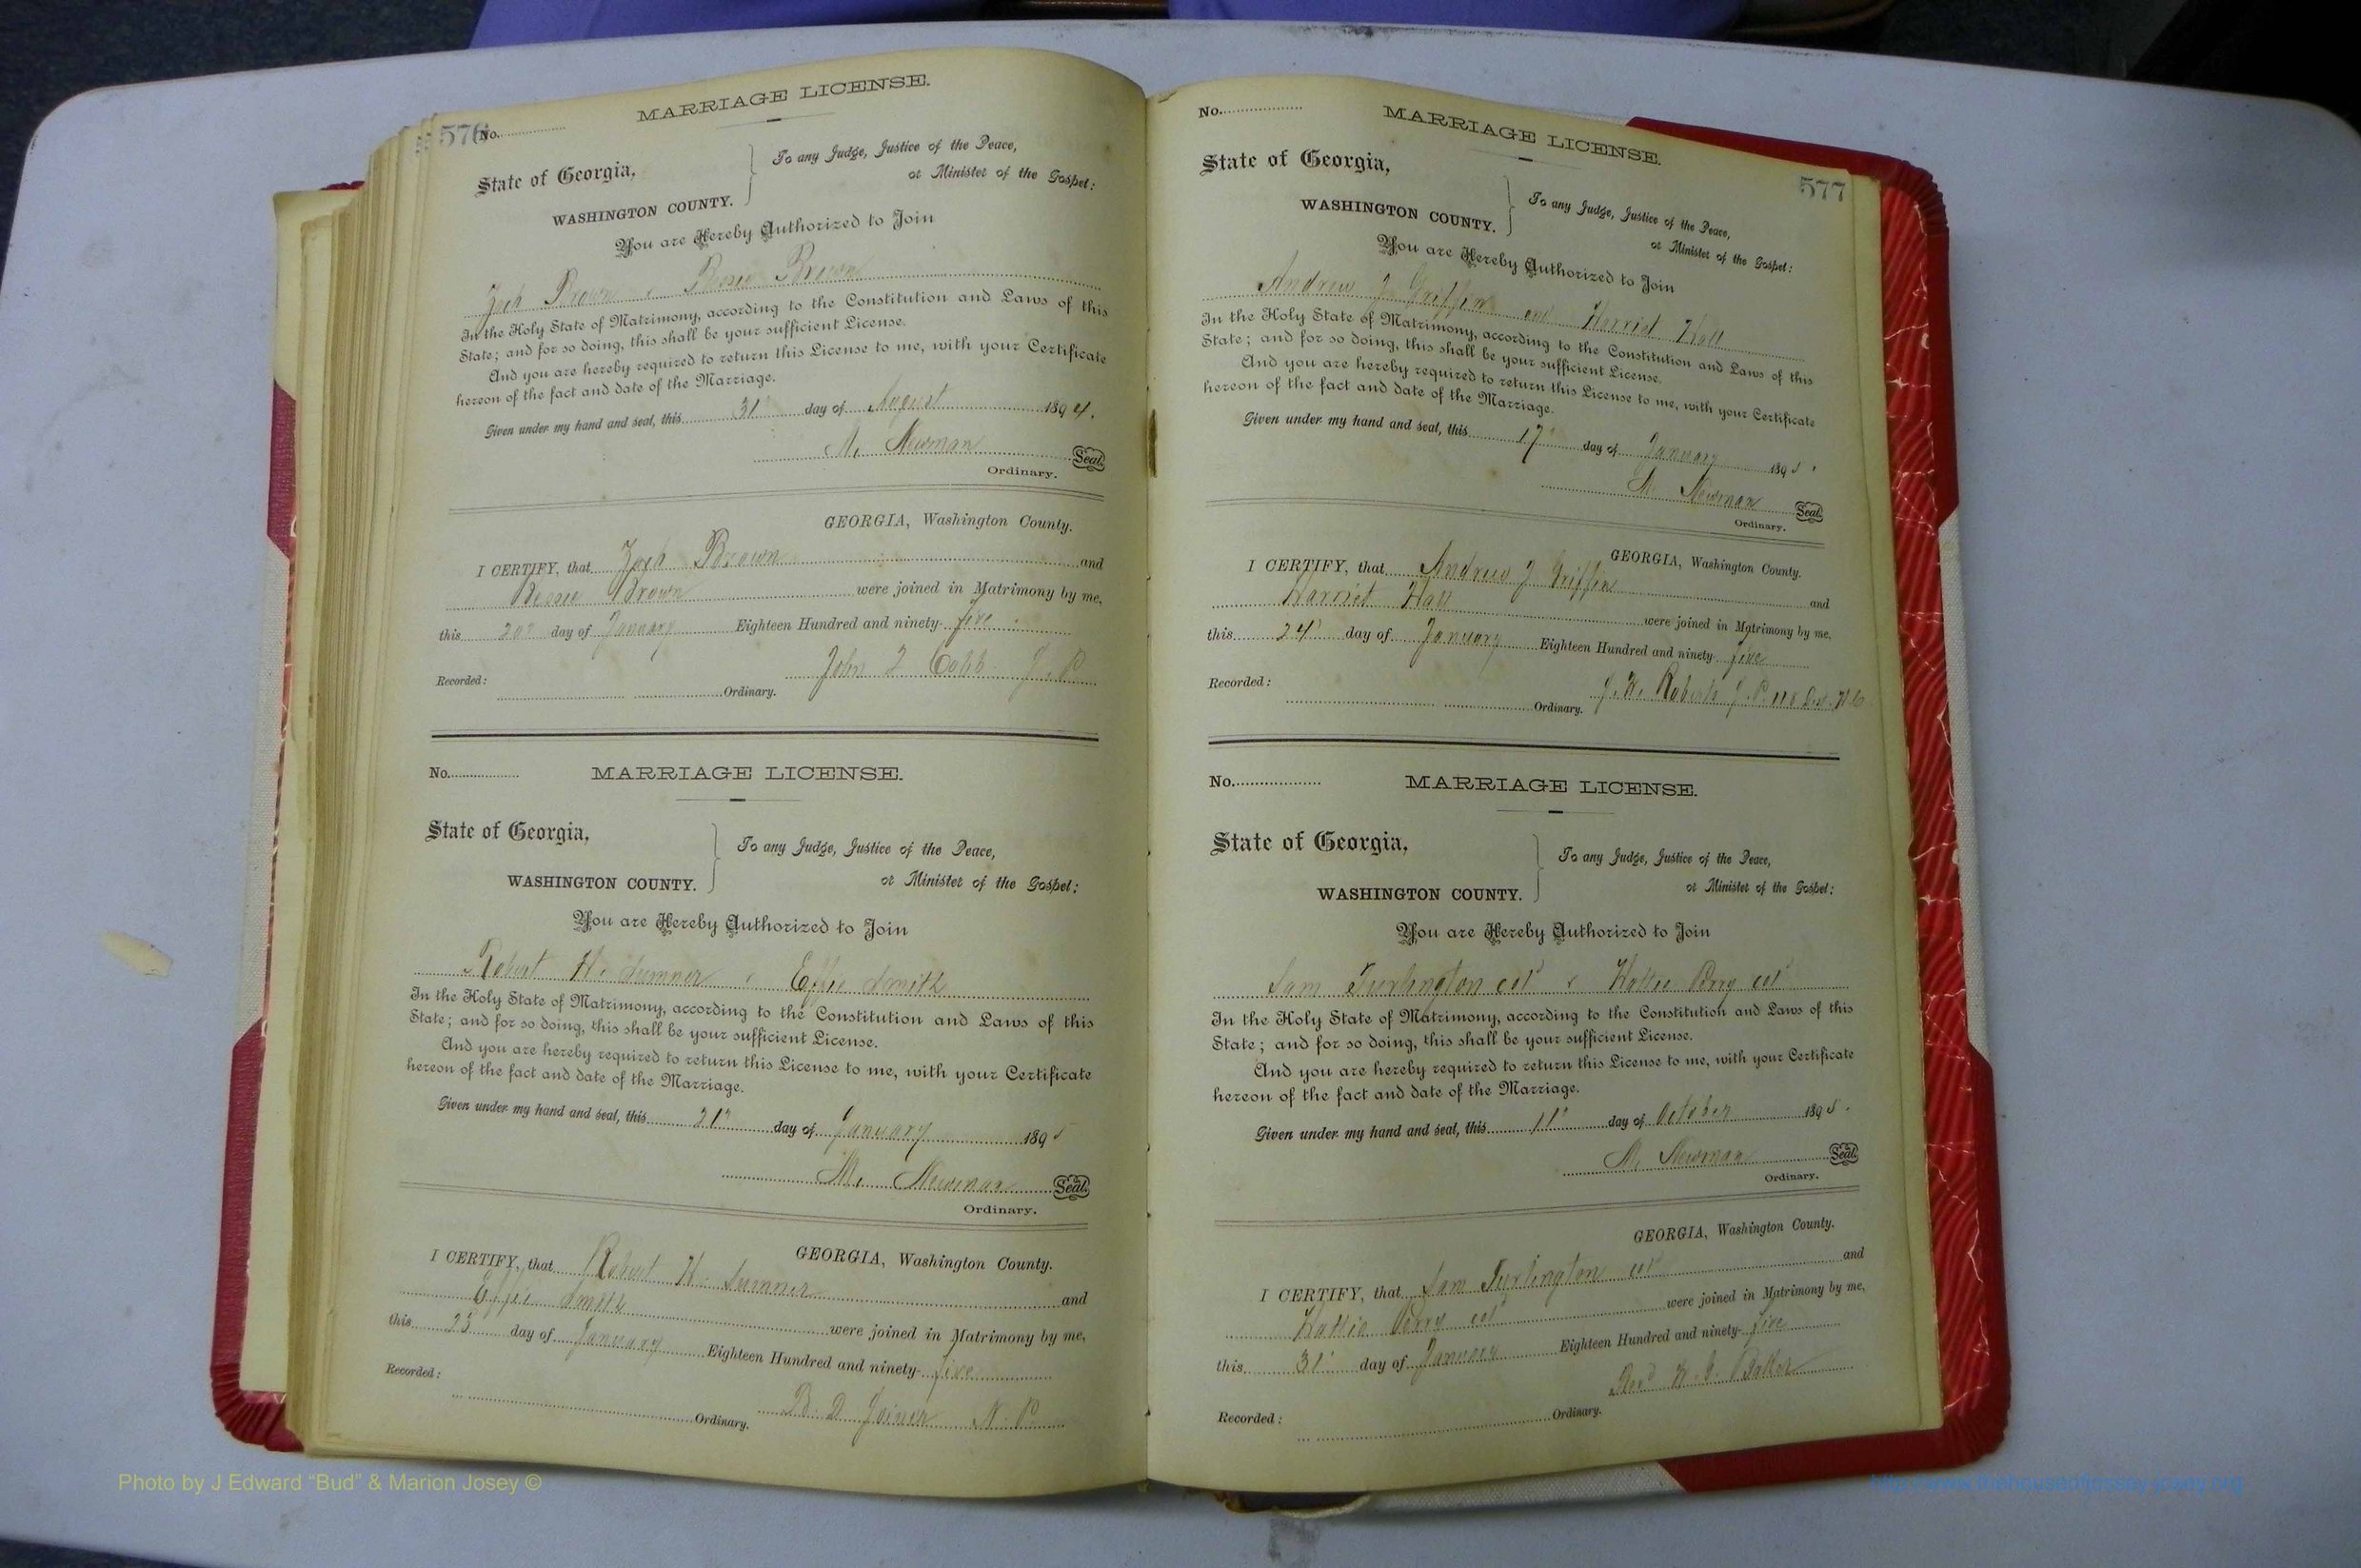 576
No.
MARRIAGE LICENSE.
State of Georgia,
WASHINGTON COUNTY.
To any Judge, Justice of the Peace,
or Minister of the Gospel:
You are Hereby Authorized to Join
Zach Brown & Bessie Brown
In the Holy State of Matrimony, according to the Constitution and Laws of this
State; and for so doing, this shall be your sufficient License.
And you are hereby required to return this License to me, with your Certificate
hereon of the fact and date of the Marriage.
Given under my hand and seal, this 31" day of August 1894.
M. Newman Seal.
Ordinary.
GEORGIA, Washington County.
I CERTIFY, that Zach Brown and
Bessie Brown were joined in Matrimony by me,
this day of January Eighteen Hundred and ninety-five.
John Cobb J. P.
Recorded: Ordinary.
No. MARRIAGE LICENSE.
State of Georgia,
WASHINGTON COUNTY.
To any Judge, Justice of the Peace,
or Minister of the Gospel:
You are Hereby Authorized to Join
Robert H. Sumner & Effie Smith
In the Holy State of Matrimony, according to the Constitution and Laws of this
State; and for so doing, this shall be your sufficient License.
And you are hereby required to return this License to me, with your Certificate
hereon of the fact and date of the Marriage.
Given under my hand and seal, this 21" day of January 1895
M. Newman Seal.
Ordinary.
GEORGIA, Washington County.
I CERTIFY, that Robert H. Sumner and
Effie Smith were joined in Matrimony by me,
this 23 day of January Eighteen Hundred and ninety-five
B. D. Joiner N. P.
Recorded: Ordinary.
No.
MARRIAGE LICENSE.
577
State of Georgia,
WASHINGTON COUNTY.
To any Judge, Justice of the Peace,
or Minister of the Gospel:
You are Hereby Authorized to Join
Andrew J Griffin and Harriet Hall
In the Holy State of Matrimony, according to the Constitution and Laws of this
State; and for so doing, this shall be your sufficient License.
And you are hereby required to return this License to me, with your Certificate
hereon of the fact and date of the Marriage.
Given under my hand and seal, this 17" day of January 1895.
M. Newman Seal.
Ordinary.
GEORGIA, Washington County.
I CERTIFY, that Andrew J Griffin and
Harriet Hall were joined in Matrimony by me,
this 24" day of January Eighteen Hundred and ninety-five
Roberts J. P.
Recorded: Ordinary.
No. MARRIAGE LICENSE.
State of Georgia,
WASHINGTON COUNTY.
To any Judge, Justice of the Peace,
or Minister of the Gospel:
You are Hereby Authorized to Join
Sam Turlington col & Hattie Perry col
In the Holy State of Matrimony, according to the Constitution and Laws of this
State; and for so doing, this shall be your sufficient License.
And you are hereby required to return this License to me, with your Certificate
hereon of the fact and date of the Marriage.
Given under my hand and seal, this 11" day of October 1895.
M. Newman Seal.
Ordinary.
GEORGIA, Washington County.
I CERTIFY, that Sam Turlington col and
Hattie Perry col were joined in Matrimony by me,
this 31" day of January Eighteen Hundred and ninety-five
Recorded: Ordinary.
Photo by J Edward "Bud" & Marion Josey ©